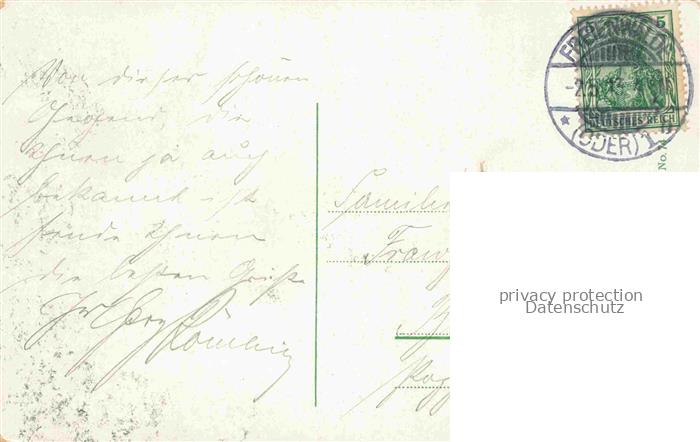 5
FREIENWALDE
DEUTSCHES REICH
* (ODER) 1
No.
Von dieser schönen
Gegend, die
Ihnen ja auch
bekannt ist
sende Ihnen
die besten Grüße
Ihr
Familie
Franz
privacy protection
Datenschutz